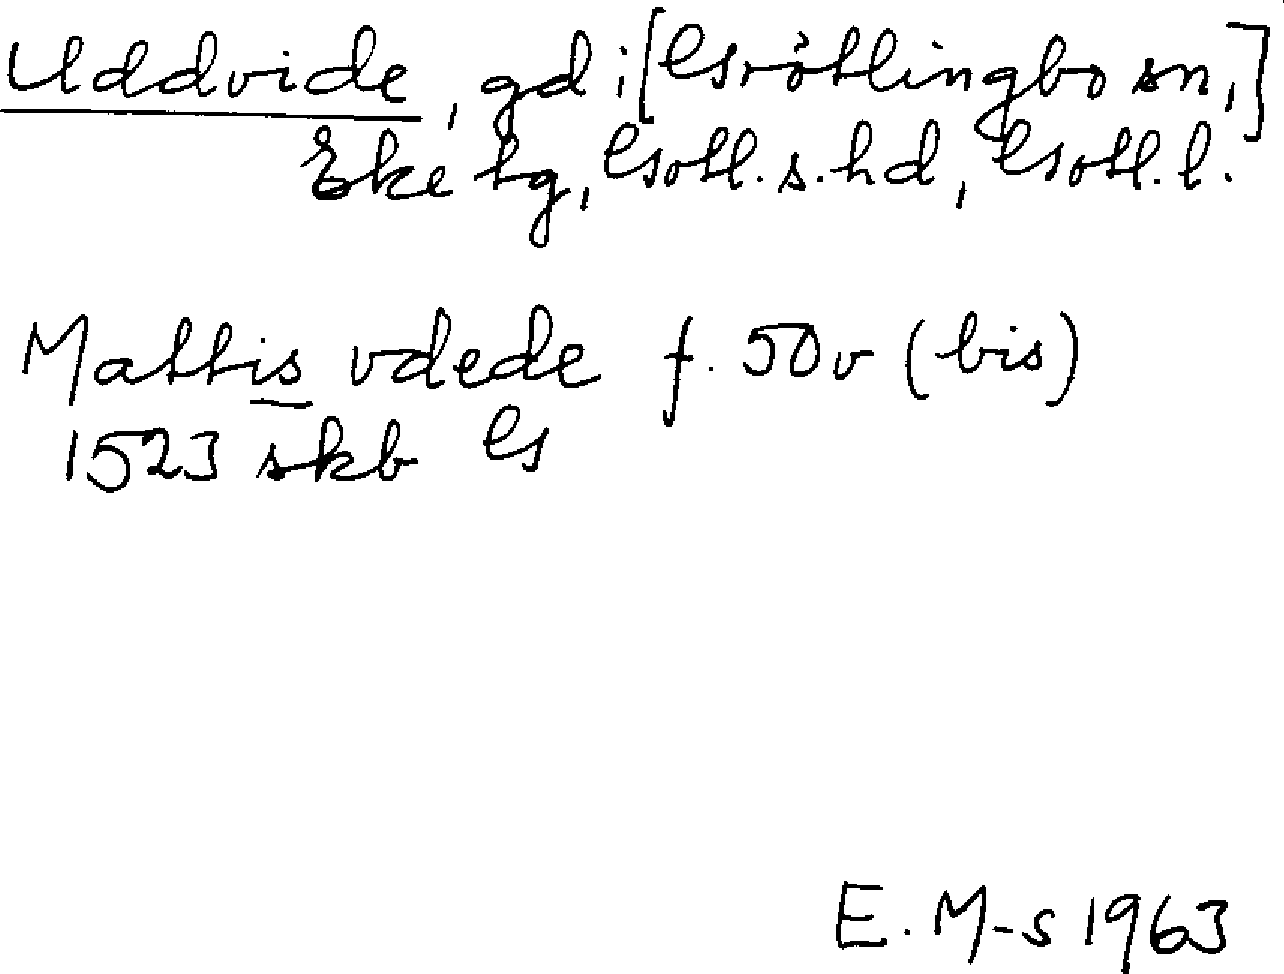 Uddvide, gd i [Grötlingbo sn,]
Eke tg, Gotl. s. hd, Gotl. l.
Mattis vdede f. 50v (bis)
1523 skb G
E. M-s 1963